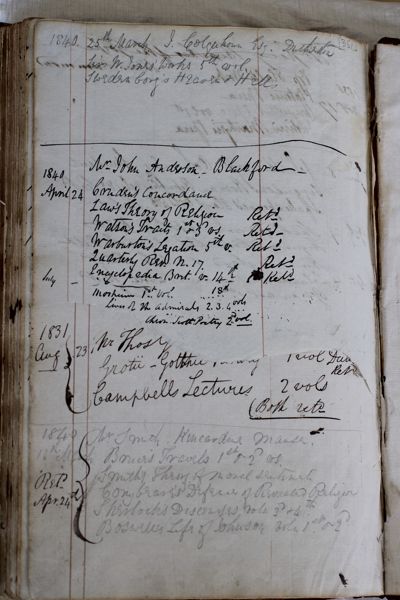 1840. 25th March J. Colquhoun Esq.
Sir W. Jones Works 5th vol.
Swedenborg's Heaven & Hell
1840 Mr John Anderson - Blackford -
April 24 Crudens Concordance
Laws Theory of Religion Retd
Watson's Tracts 1st & 3d vs. Retd
Warburtons Legation 5th v. Retd
Quarterly Revw N. 17 Retd
July - Encyclopedia Brit v. 14th Retd
1st vol. 18th
Lives of the Admirals 2. 3. 4 vols
Scott Poetry 2d vol
1831
Aug 23 Mr Thos
Grotii 1 vol
Retd
Campbells Lectures 2 vols
(Both retd
1840 Mr Smith Kincardine Manse
Bruce's Travels 1st & 2d vs.
Smiths Theory of moral sentiments
Retd Defence of Revealed Religion
Apr. 24 Sherlocks Discourses, vols 3d & 4th
Boswells Life of Johnson vols 1st & 2d